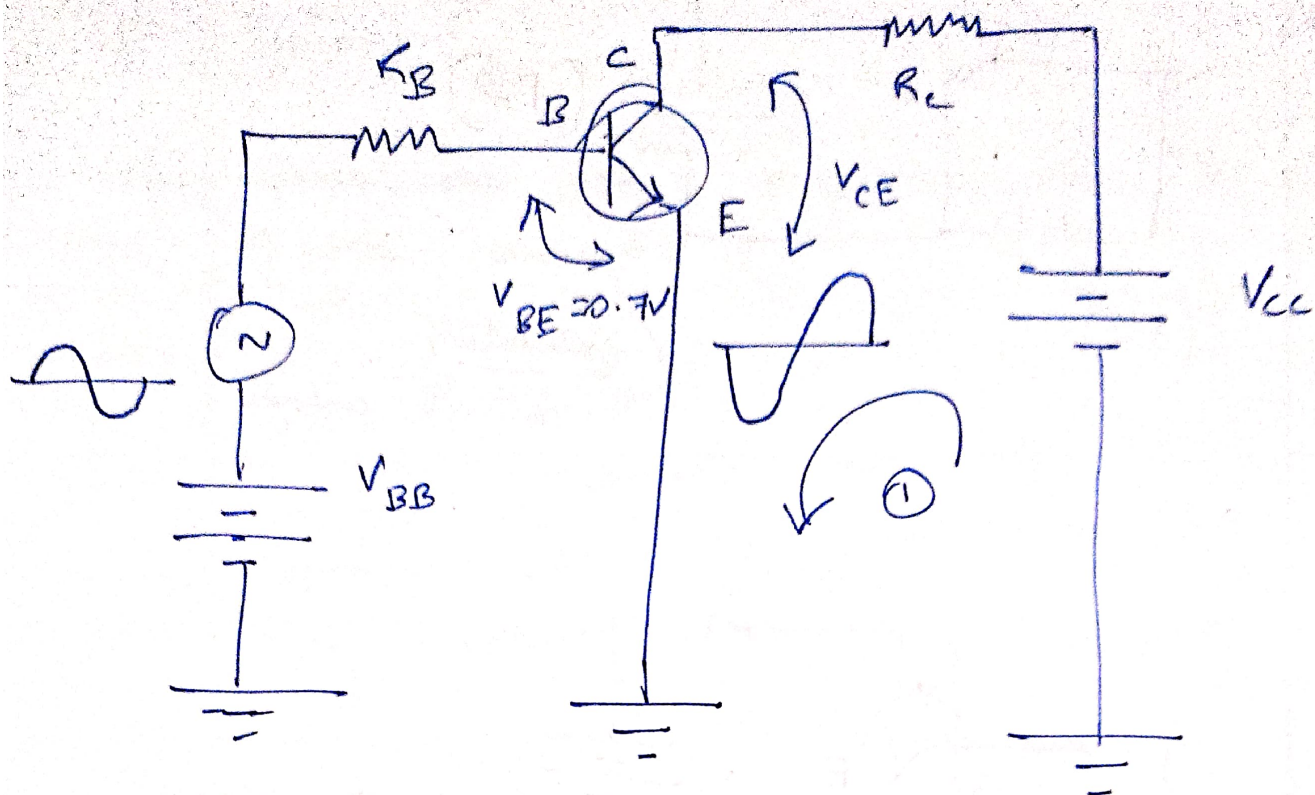 R_B
C
B
R_c
V_CE
E
V_BE = 0.7V
V_CC
~
V_BB
①